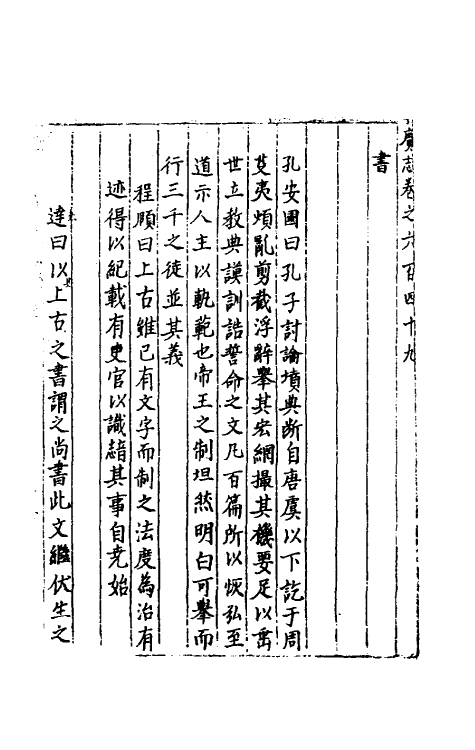 廣志卷之六百四十九
書
孔安國曰孔子討論墳典断自唐虞以下訖于周
芟夷煩亂剪截浮辭舉其宏綱撮其機要足以垂
世立教典謨訓誥誓命之文凡百篇所以恢弘至
道示人主以軌範也帝王之制坦然明白可舉而
行三千之徒並其義
程頤曰上古雖已有文字而制之法度為治有
迹得以紀載有史官以識其事自堯始
達曰以上古之書謂之尚書此文繼伏生之